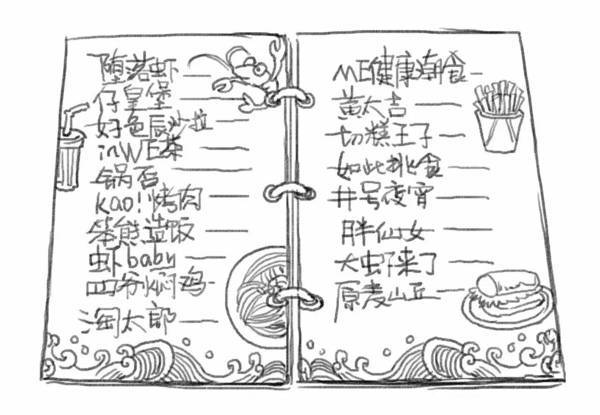 堕落虾
仔皇堡
好色辰沙拉
inWE茶
锅否
kao!烤肉
笨熊造饭
虾baby
四分焖鸡
淘太郎
ME健康潮食
黄太吉
切糕王子
如此挑食
井号夜宵
胖仙女
大虾来了
原麦山丘